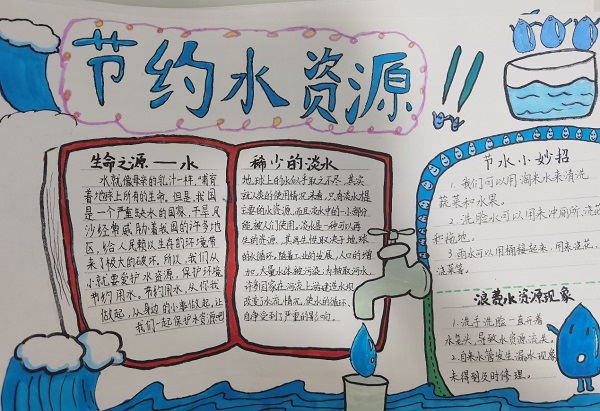 节约水资源!!
生命之源——水
水就像母亲的乳汁一样,"哺育
着地球上所有的生命。但是,我国
是一个严重缺水的国家,干旱风
沙经常威胁着我国的许多地
区,给人民赖以生存的环境带
来了极大的破坏。所以,我们从
小就要爱护水资源,保护环境
节约用水。节约用水,从你我
做起,从身边的小事做起,让
我们一起保护水资源吧
稀少的淡水
地球上的水似乎取之不尽,其实
就人类的使用情况来看,只有淡水是
主要的水资源,而且淡水中的一小部分
能被人们使用。淡水是一种可以再
生的资源,其再生性取决于地球
的水循环。随着工业的发展,人口的增
加,大量水体被污染;为抽取河水,
许多国家在河流上游建造水坝,
改变了水流情况,使水的循环、
自净受到了严重的影响。
节水小妙招
1.我们可以用淘米水来清洗
蔬菜和水果。
2.洗脸水可以用来冲厕所,浇花
和拖地。
3.雨水可以用桶接起来,用来浇花、
浇菜等。
浪费水资源现象
1.洗手洗脸一直开着
水龙头,导致水资源流失。
2.自来水管发生漏水现象
未得到及时修理。